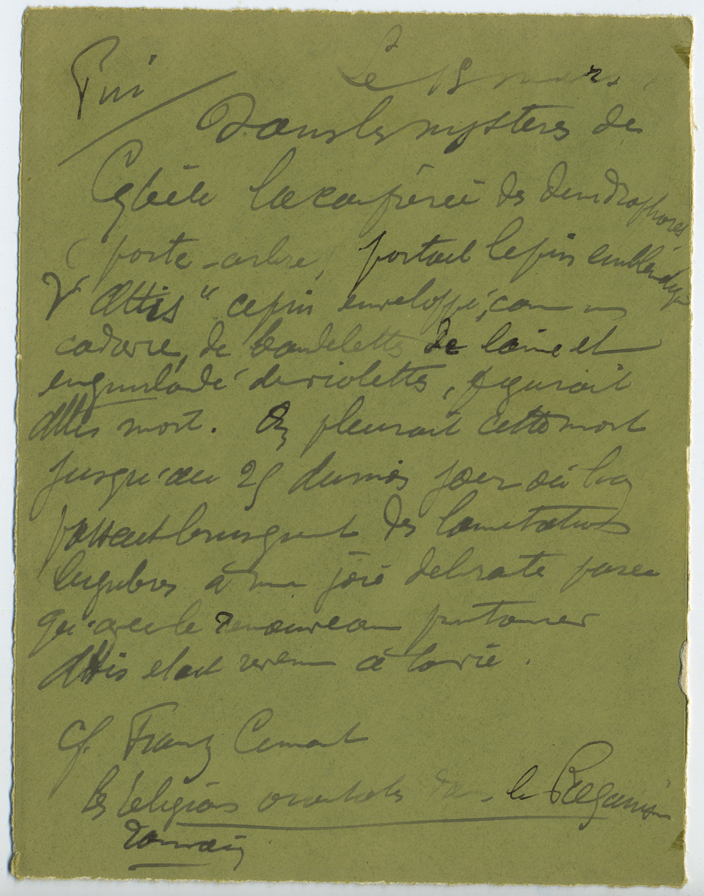 Pin
Le 15 mars
Dans les mystères de
Cybèle la confrérie des dendrophores
(porte-arbre, portait le pin emblême
d'Attis" ce pin enveloppé, comme un
cadavre, de bandelettes de laine et
enguirlandé de violettes, figurait
Attis mort. On pleurait cette mort
jusqu'au 25 du mois jour où l'on
passait brusquement des lamentations
lugubres à une joie délirante parce
qu'avec le renouveau printanier
Attis était revenu à la vie.
cf. Franz Cumont
les religions orientales dans le Paganisme
romain